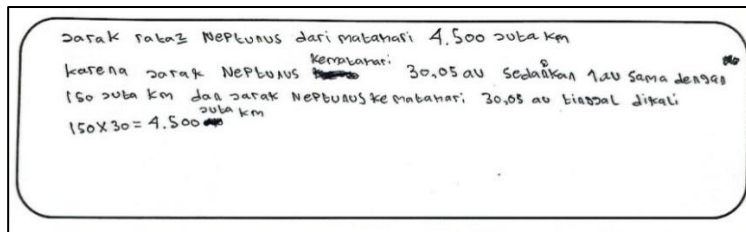 Jarak rata2 Neptunus dari matahari 4.500 juta km
karena jarak Neptunus kematahari 30,05 au sedangkan 1 au sama dengan
150 juta km dan jarak Neptunus ke matahari 30,05 au tinggal dikali
150 x 30 = 4.500 juta km